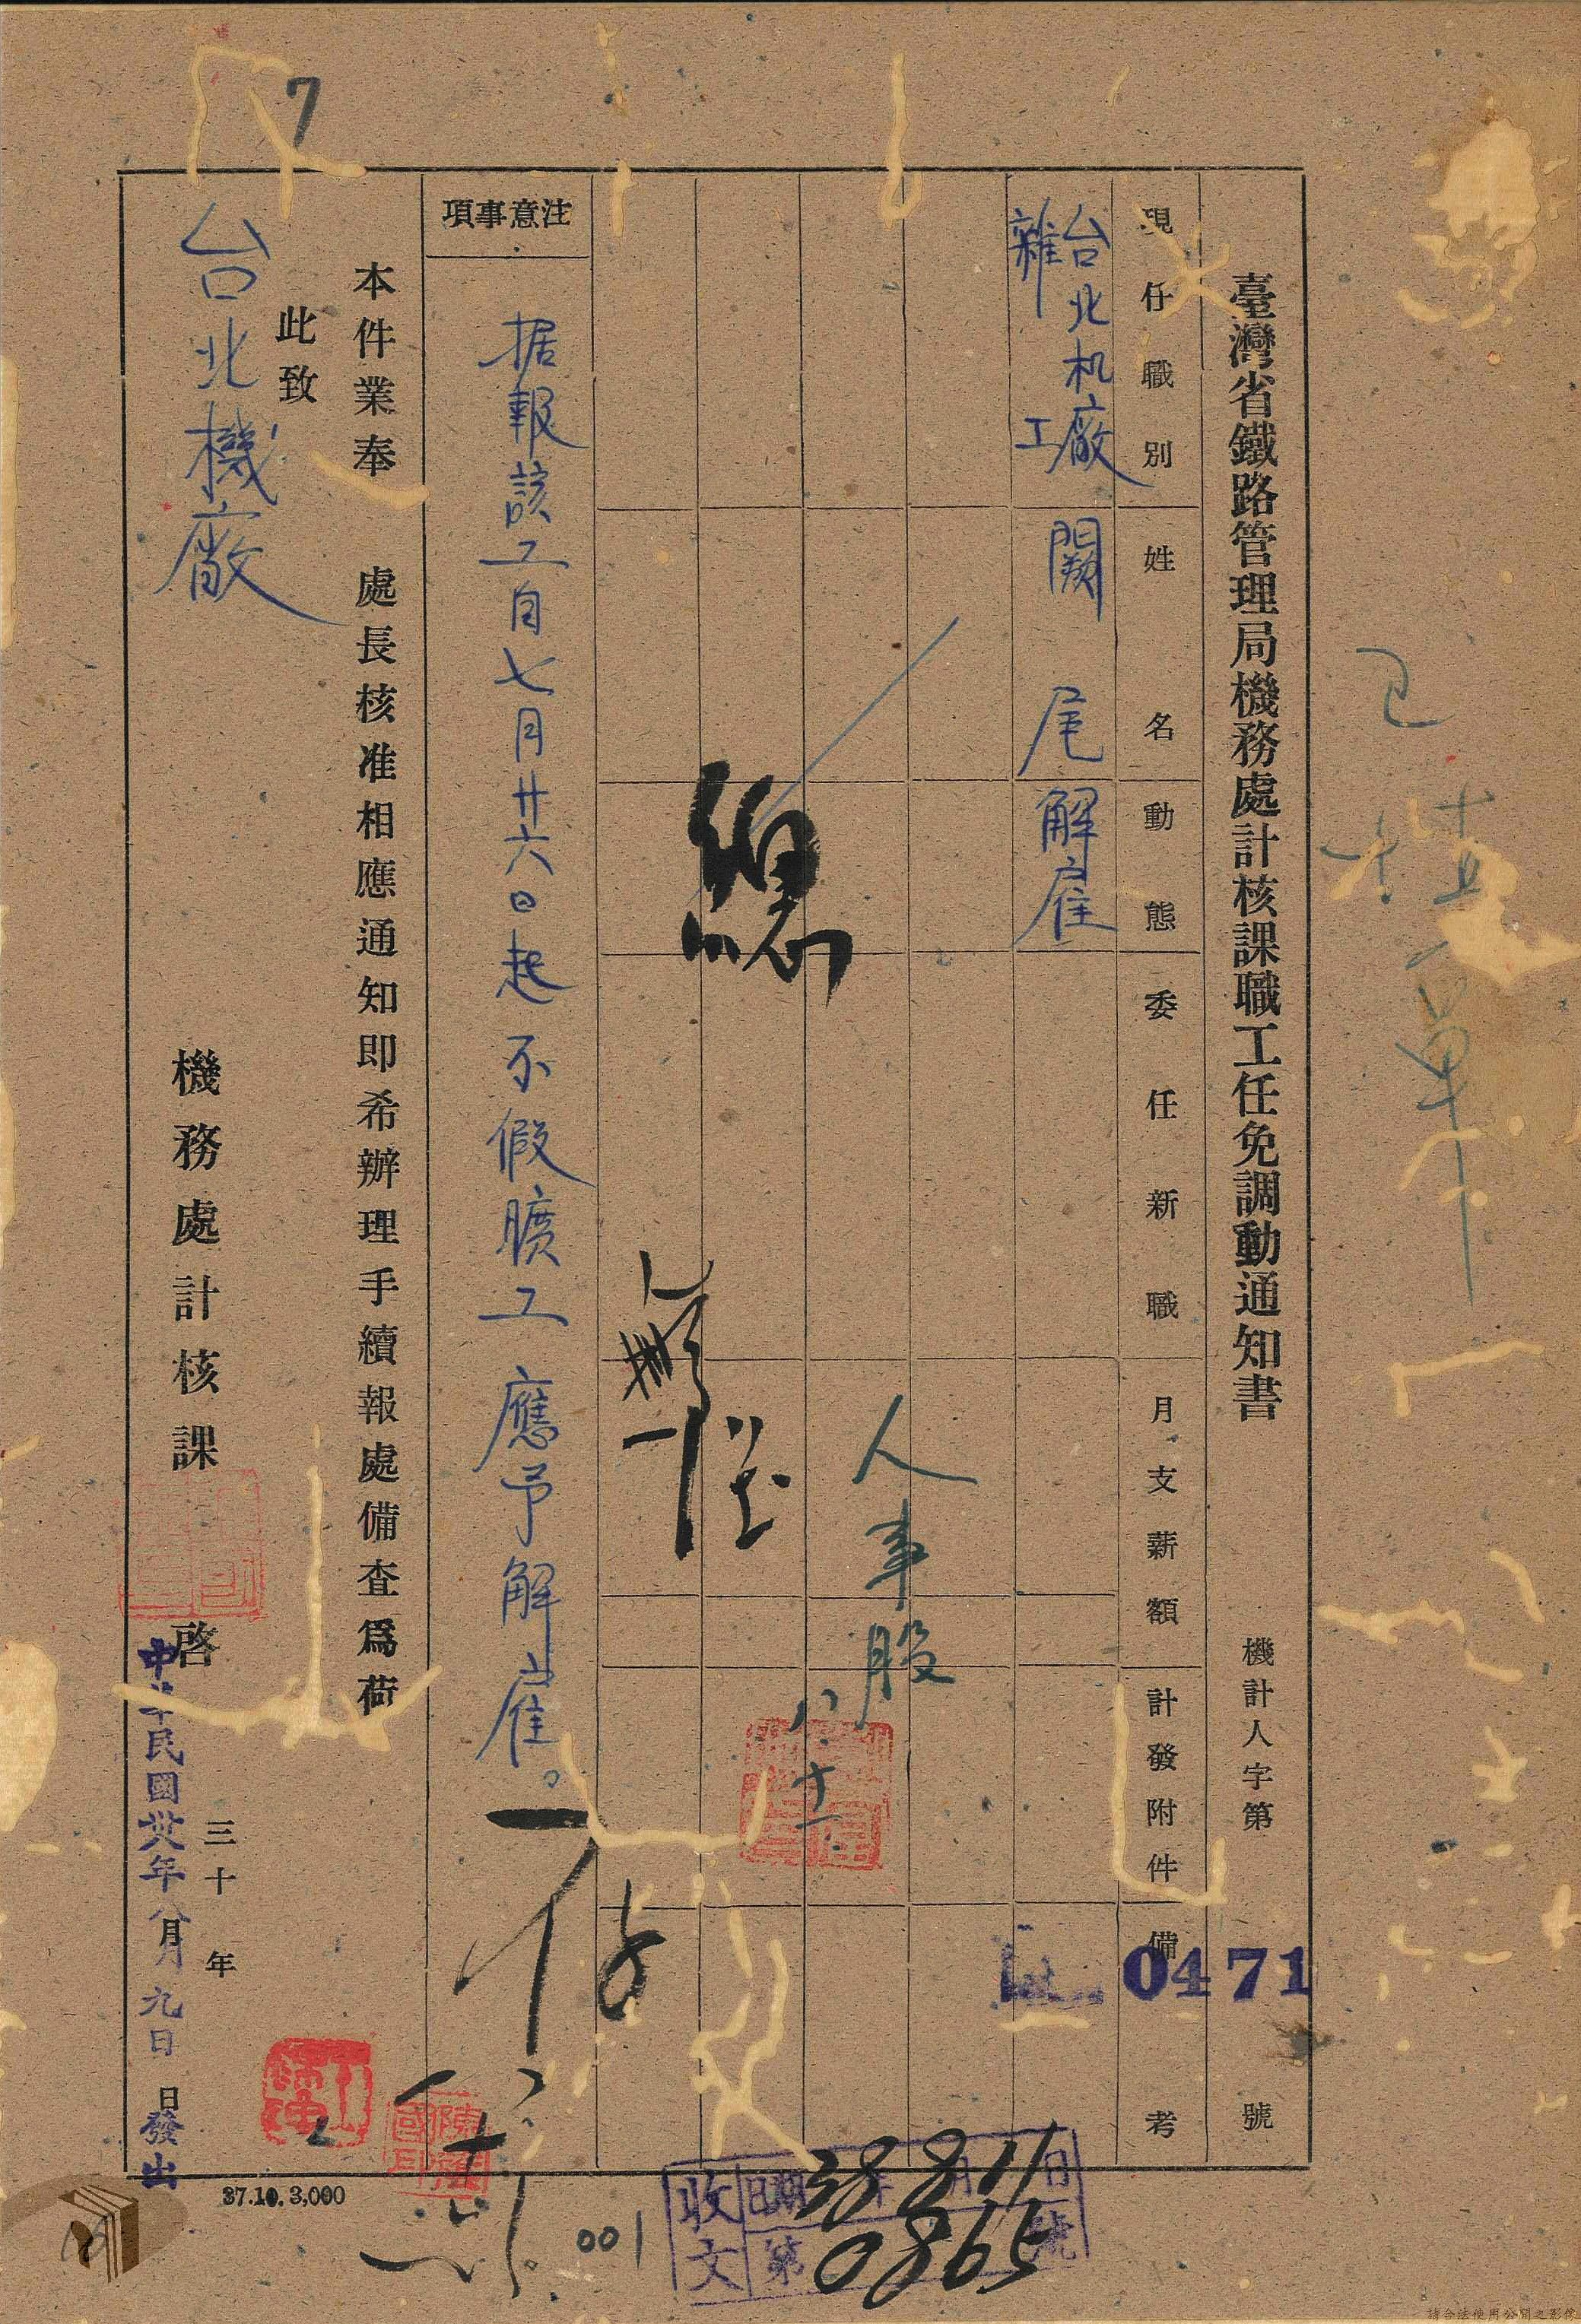 臺灣省鐵路管理局機務處計核課職工任免調動通知書
機計人字第
0471
號
現任職別
姓名
動態
委任新職
月支薪額
計發附件
備考
台北机廠
雜工
闕尾
解雇
總
人事股
八、十一
注意事項
据報該工自七月廿六日起不假曠工應予解雇。
本件業奉 處長核准相應通知即希辦理手續報處備查爲荷
此致
台北機廠
機務處計核課 啓
三十年
月
日
中華民國卅八年八月九日發出
37.10. 3,000
001
收文
日期 38年8月11日
第0865號
7
已
請合法使用公開之影像